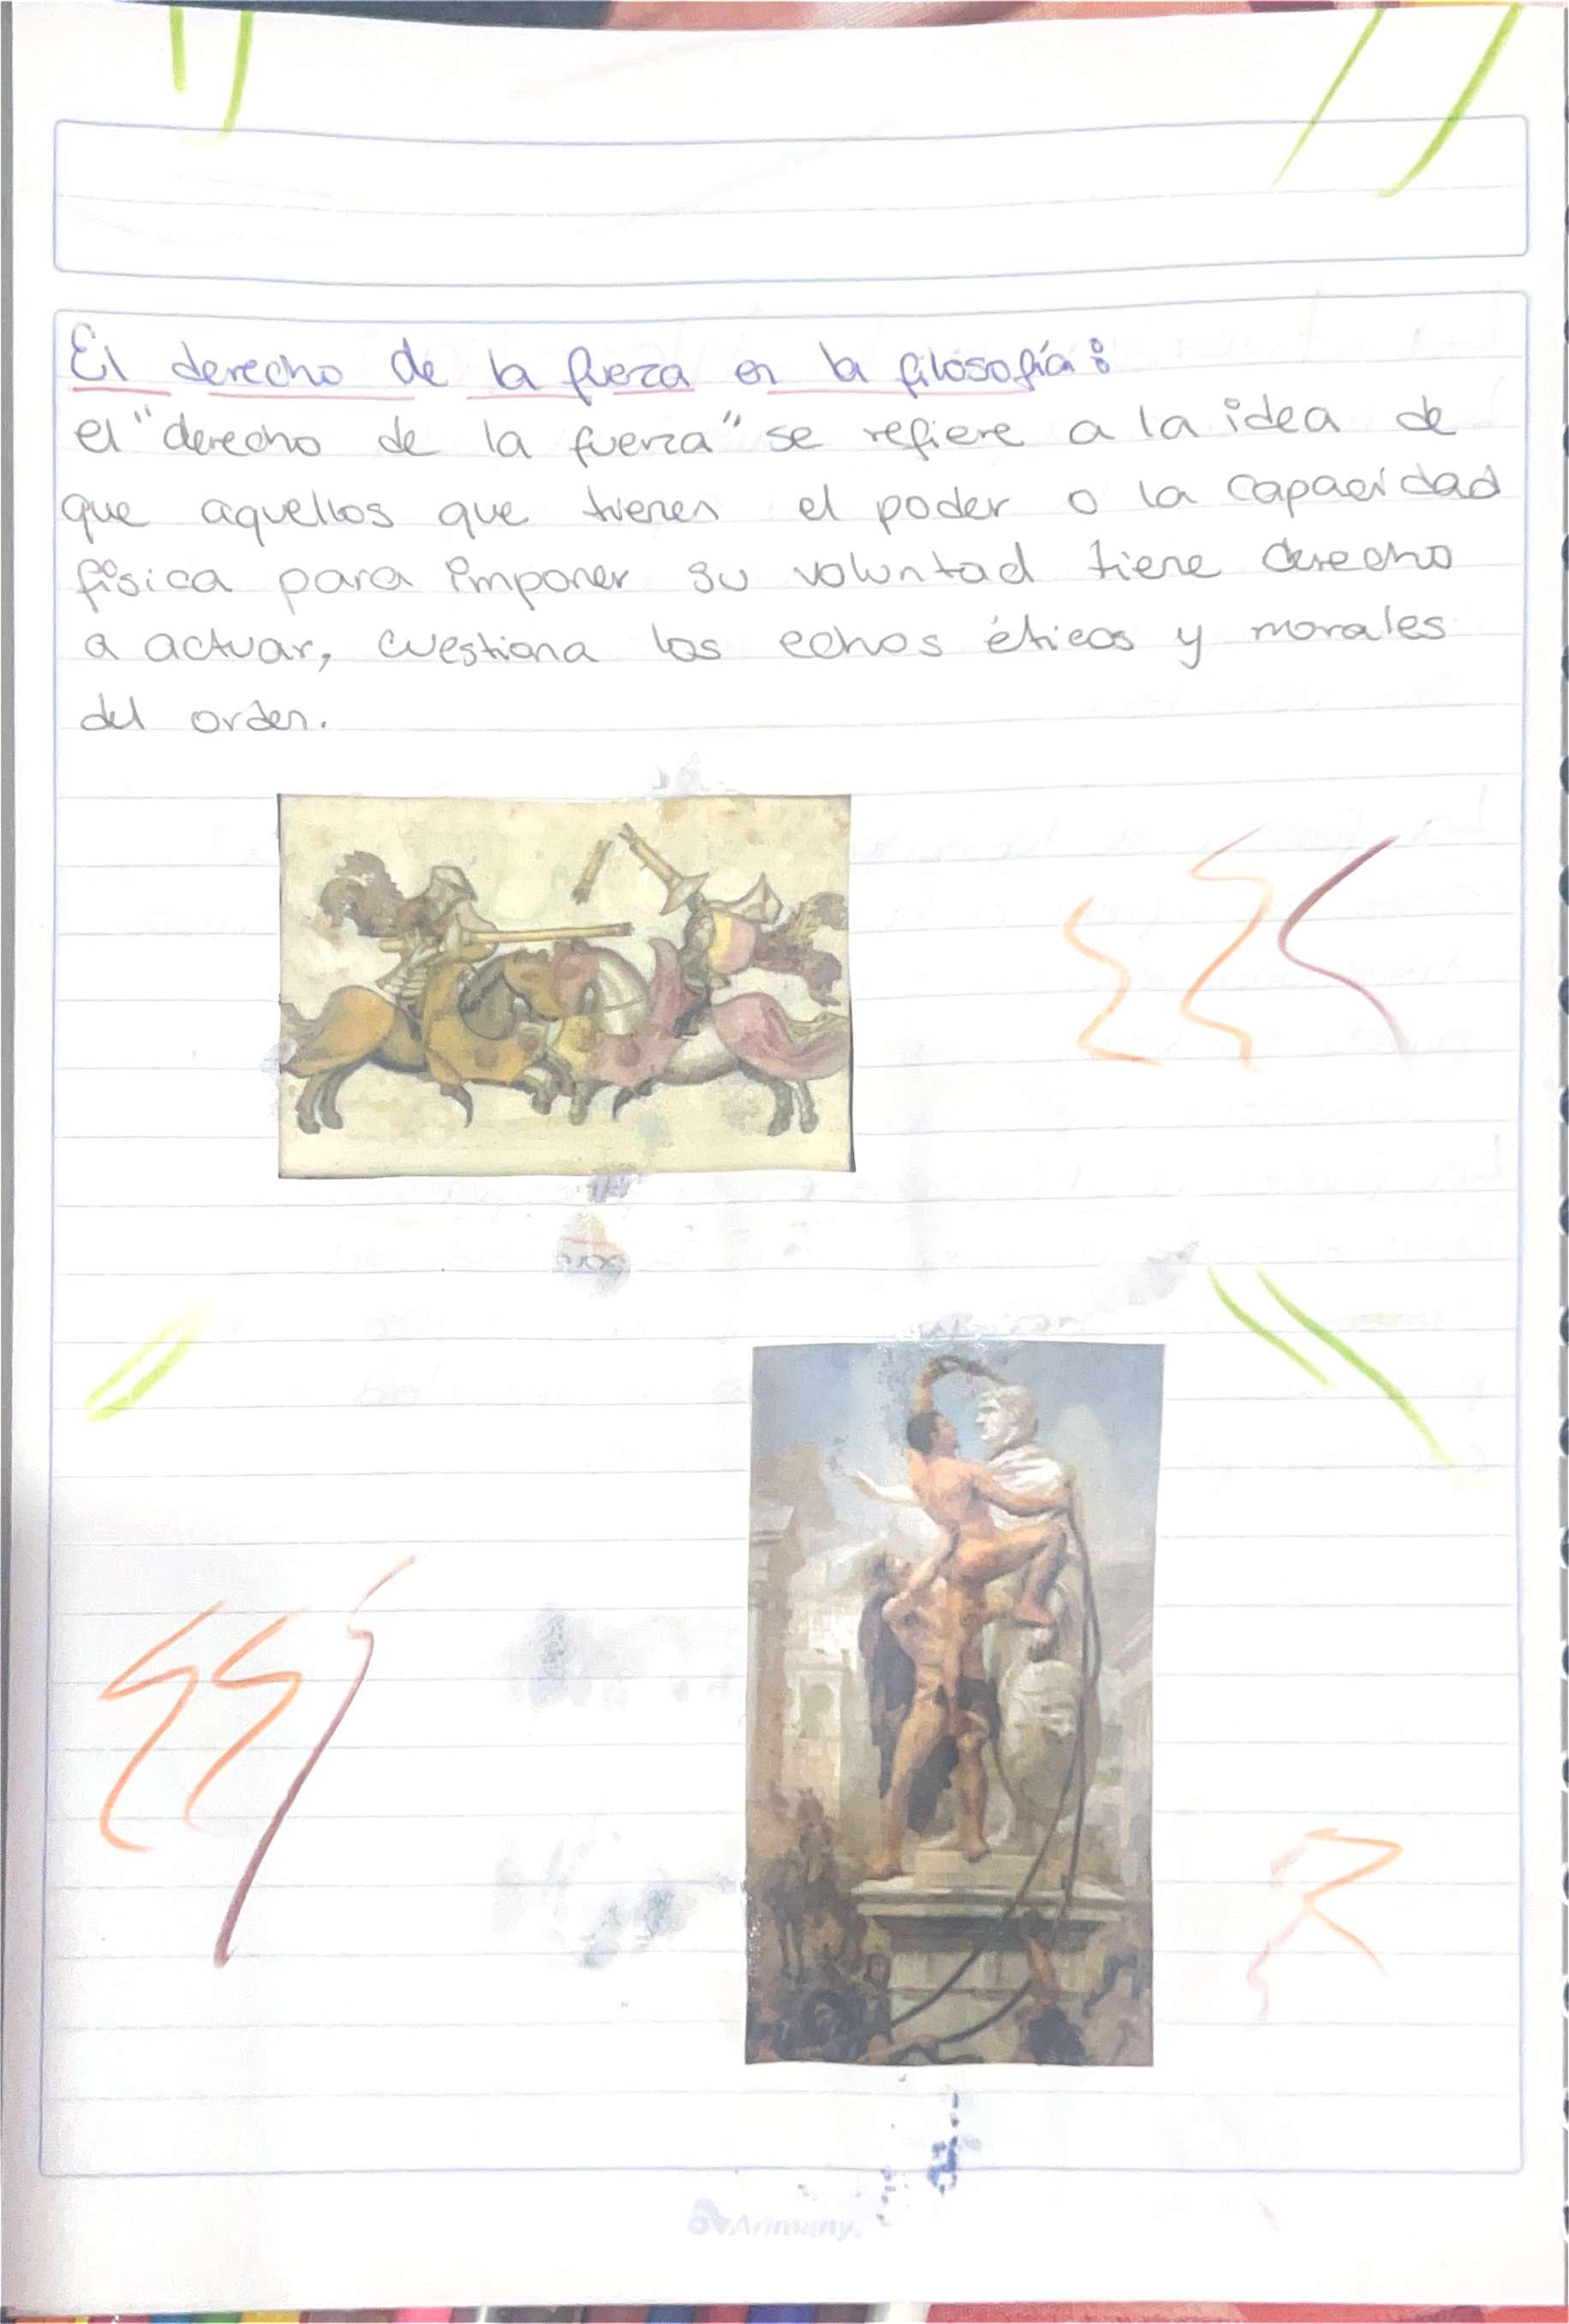 El derecho de la fuerza en la filosofía:
el "derecho de la fuerza" se refiere a la idea de
que aquellos que tienen el poder o la capacidad
física para imponer su voluntad tiene derecho
a actuar, cuestiona los echos éticos y morales
del orden.
Arimany.